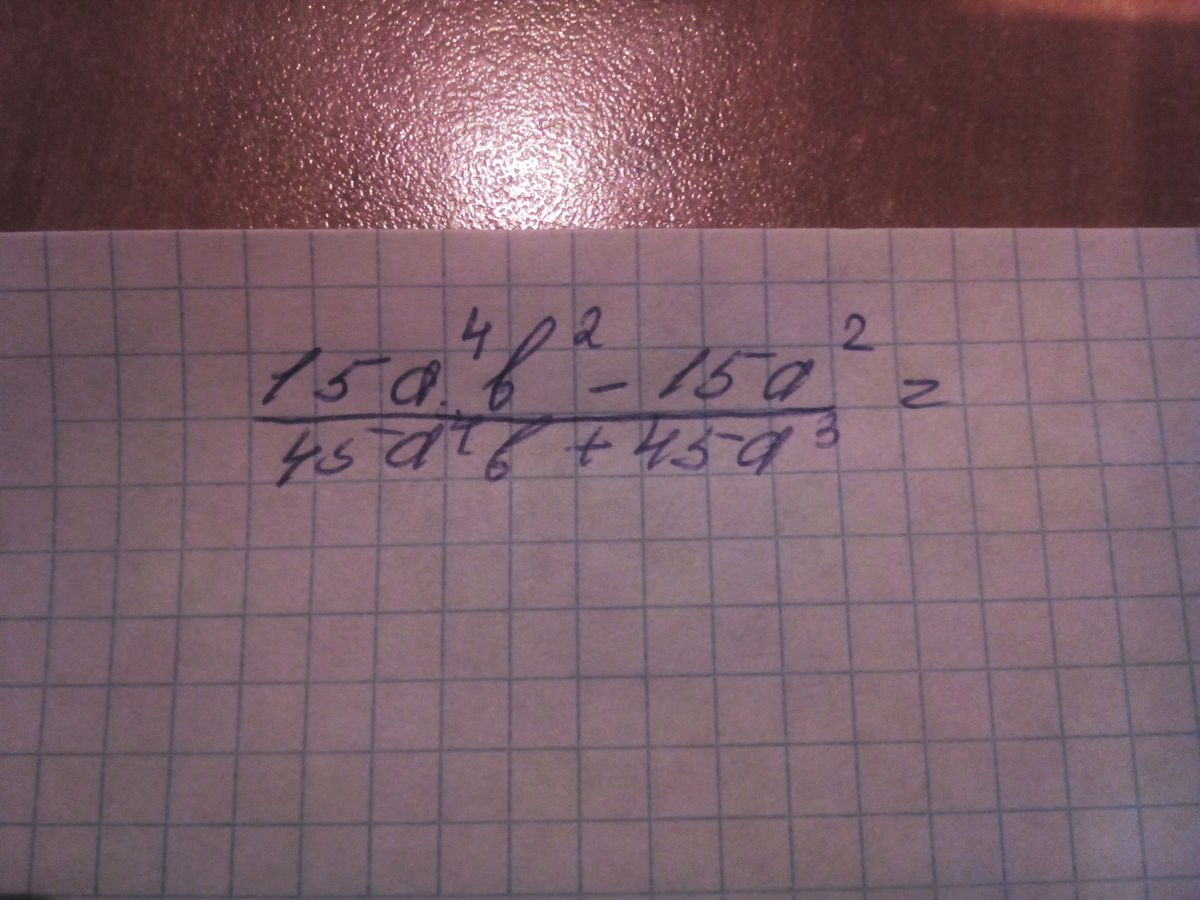 15a⁴b² - 15a² =
45a⁴b + 45a³